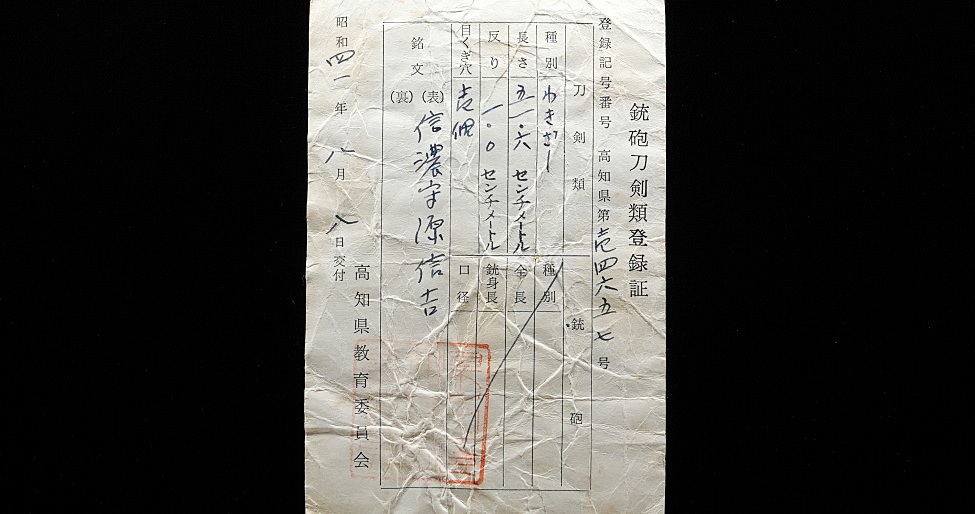 銃砲刀剣類登録証
登録記号番号 高知県第壱四六五七号
刀剣類
種別 わきざし
長さ 五一.六 センチメートル
反り 一.〇 センチメートル
目くぎ穴 壱個
銘文 (表) 信濃守源信吉
(裏)
銃砲
種別
全長
銃身長
口径
昭和四一年八月八日交付
高知県教育委員会